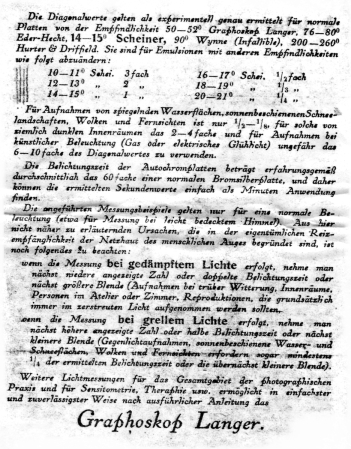 Die Diagonalwerte gelten als experimentell genau ermittelt für normale
Platten von der Empfindlichkeit 50—52° Graphoskop Langer, 76—80°
Eder-Hecht, 14—15° Scheiner, 90° Wynne (Infallible), 200—260°
Hurter & Driffield. Sie sind für Emulsionen mit anderen Empfindlichkeiten
wie folgt abzuändern:
10—11° Schei. 3 fach 16—17° Schei. 1/2 fach
12—13° „ 2 „ 18—19° „ 1/3 „
14—15° „ 1 „ 20—21° „ 1/4 „
Für Aufnahmen von spiegelnden Wasserflächen, sonnenbeschienenen Schnee-
landschaften, Wolken und Fernsichten ist nur 1/3—1/6, für solche von
ziemlich dunklen Innenräumen das 2—4 fache und für Aufnahmen bei
künstlicher Beleuchtung (Gas oder elektrisches Glühlicht) ungefähr das
6—10 fache des Diagonalwertes zu verwenden.
Die Belichtungszeit der Autochromplatten beträgt erfahrungsgemäß
durchschnittlich das 60 fache einer normalen Bromsilberplatte, und daher
können die ermittelten Sekundenwerte einfach als Minuten Anwendung
finden.
Die angeführten Messungsbeispiele gelten nur für eine normale Be-
leuchtung (etwa für Messung bei leicht bedecktem Himmel). Aus hier
nicht näher zu erläuternden Ursachen, die in der eigentümlichen Reiz-
empfänglichkeit der Netzhaut des menschlichen Auges begründet sind, ist
noch folgendes zu beachten:
wenn die Messung bei gedämpftem Lichte erfolgt, nehme man
nächst niedere angezeigte Zahl oder doppelte Belichtungszeit oder
nächst größere Blende (Aufnahmen bei trüber Witterung, Innenräume,
Personen im Atelier oder Zimmer, Reproduktionen, die grundsätzlich
immer im zerstreuten Licht aufgenommen werden sollten,
wenn die Messung bei grellem Lichte erfolgt, nehme man
nächst höhere angezeigte Zahl oder halbe Belichtungszeit oder nächst
kleinere Blende (Gegenlichtaufnahmen, sonnenbeschienene Wasser- und
Schneeflächen, Wolken und Fernsichten erfordern sogar mindestens
1/4 der ermittelten Belichtungszeit oder die übernächst kleinere Blende).
Weitere Lichtmessungen für das Gesamtgebiet der photographischen
Praxis und für Sensitometrie, Theraphie usw. ermöglicht in einfachster
und zuverlässigster Weise nach ausführlicher Anleitung das
Graphoskop Langer.